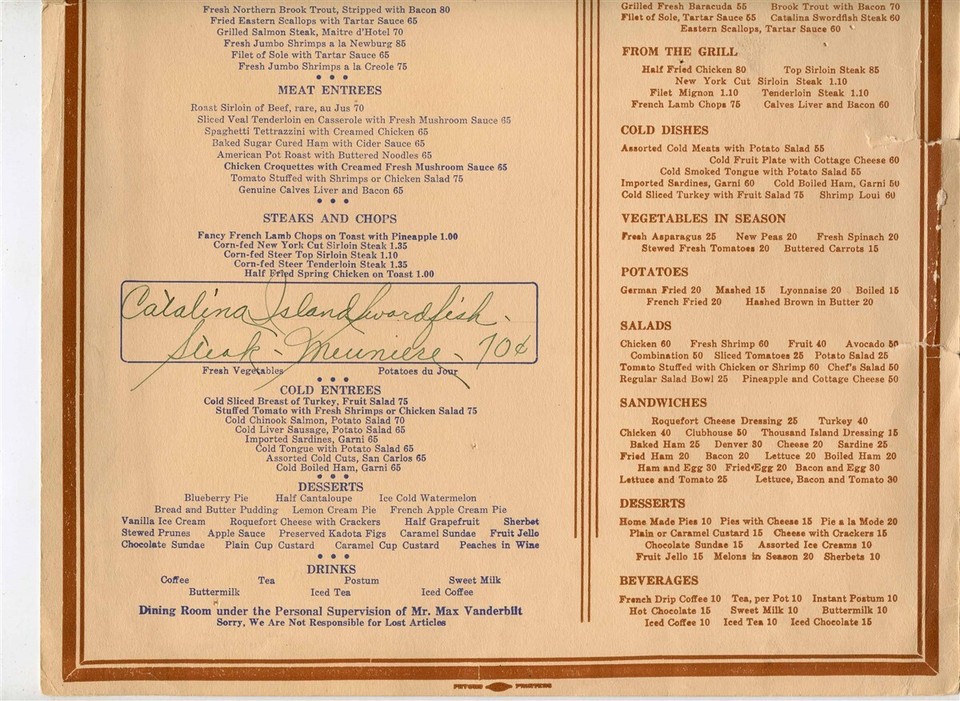 Fresh Northern Brook Trout, Stripped with Bacon 80
Fried Eastern Scallops with Tartar Sauce 65
Grilled Salmon Steak, Maitre d'Hotel 70
Fresh Jumbo Shrimps a la Newburg 85
Filet of Sole with Tartar Sauce 65
Fresh Jumbo Shrimps a la Creole 75
MEAT ENTREES
Roast Sirloin of Beef, rare, au Jus 70
Sliced Veal Tenderloin en Casserole with Fresh Mushroom Sauce 65
Spaghetti Tettrazzini with Creamed Chicken 65
Baked Sugar Cured Ham with Cider Sauce 65
American Pot Roast with Buttered Noodles 65
Chicken Croquettes with Creamed Fresh Mushroom Sauce 65
Tomato Stuffed with Shrimps or Chicken Salad 75
Genuine Calves Liver and Bacon 65
STEAKS AND CHOPS
Fancy French Lamb Chops on Toast with Pineapple 1.00
Corn-fed New York Cut Sirloin Steak 1.35
Corn-fed Steer Top Sirloin Steak 1.10
Corn-fed Steer Tenderloin Steak 1.35
Half Fried Spring Chicken on Toast 1.00
Catalina Island Swordfish -
Steak - Meuniese - 70¢
Fresh Vegetables Potatoes du Jour
COLD ENTREES
Cold Sliced Breast of Turkey, Fruit Salad 75
Stuffed Tomato with Fresh Shrimps or Chicken Salad 75
Cold Chinook Salmon, Potato Salad 70
Cold Liver Sausage, Potato Salad 65
Imported Sardines, Garni 65
Cold Tongue with Potato Salad 65
Assorted Cold Cuts, San Carlos 65
Cold Boiled Ham, Garni 65
DESSERTS
Blueberry Pie Half Cantaloupe Ice Cold Watermelon
Bread and Butter Pudding Lemon Cream Pie French Apple Cream Pie
Vanilla Ice Cream Roquefort Cheese with Crackers Half Grapefruit Sherbet
Stewed Prunes Apple Sauce Preserved Kadota Figs Caramel Sundae Fruit Jello
Chocolate Sundae Plain Cup Custard Caramel Cup Custard Peaches in Wine
DRINKS
Coffee Tea Postum Sweet Milk
Buttermilk Iced Tea Iced Coffee
Dining Room under the Personal Supervision of Mr. Max Vanderbilt
Sorry, We Are Not Responsible for Lost Articles
Grilled Fresh Baracuda 55 Brook Trout with Bacon 70
Filet of Sole, Tartar Sauce 55 Catalina Swordfish Steak 60
Eastern Scallops, Tartar Sauce 60
FROM THE GRILL
Half Fried Chicken 80 Top Sirloin Steak 85
New York Cut Sirloin Steak 1.10
Filet Mignon 1.10 Tenderloin Steak 1.10
French Lamb Chops 75 Calves Liver and Bacon 60
COLD DISHES
Assorted Cold Meats with Potato Salad 55
Cold Fruit Plate with Cottage Cheese 60
Cold Smoked Tongue with Potato Salad 55
Imported Sardines, Garni 60 Cold Boiled Ham, Garni 50
Cold Sliced Turkey with Fruit Salad 75 Shrimp Loui 60
VEGETABLES IN SEASON
Fresh Asparagus 25 New Peas 20 Fresh Spinach 20
Stewed Fresh Tomatoes 20 Buttered Carrots 15
POTATOES
German Fried 20 Mashed 15 Lyonnaise 20 Boiled 15
French Fried 20 Hashed Brown in Butter 20
SALADS
Chicken 60 Fresh Shrimp 60 Fruit 40 Avocado 50
Combination 50 Sliced Tomatoes 25 Potato Salad 25
Tomato Stuffed with Chicken or Shrimp 60 Chef's Salad 50
Regular Salad Bowl 25 Pineapple and Cottage Cheese 50
SANDWICHES
Roquefort Cheese Dressing 25 Turkey 40
Chicken 40 Clubhouse 50 Thousand Island Dressing 15
Baked Ham 25 Denver 30 Cheese 20 Sardine 25
Fried Ham 20 Bacon 20 Lettuce 20 Boiled Ham 20
Ham and Egg 30 Fried Egg 20 Bacon and Egg 30
Lettuce and Tomato 25 Lettuce, Bacon and Tomato 30
DESSERTS
Home Made Pies 10 Pies with Cheese 15 Pie a la Mode 20
Plain or Caramel Custard 15 Cheese with Crackers 15
Chocolate Sundae 15 Assorted Ice Creams 10
Fruit Jello 15 Melons in Season 20 Sherbets 10
BEVERAGES
French Drip Coffee 10 Tea, per Pot 10 Instant Postum 10
Hot Chocolate 15 Sweet Milk 10 Buttermilk 10
Iced Coffee 10 Iced Tea 10 Iced Chocolate 15
PRINTERS